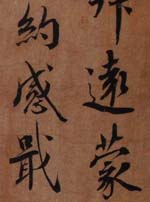 遠蒙
約感戢